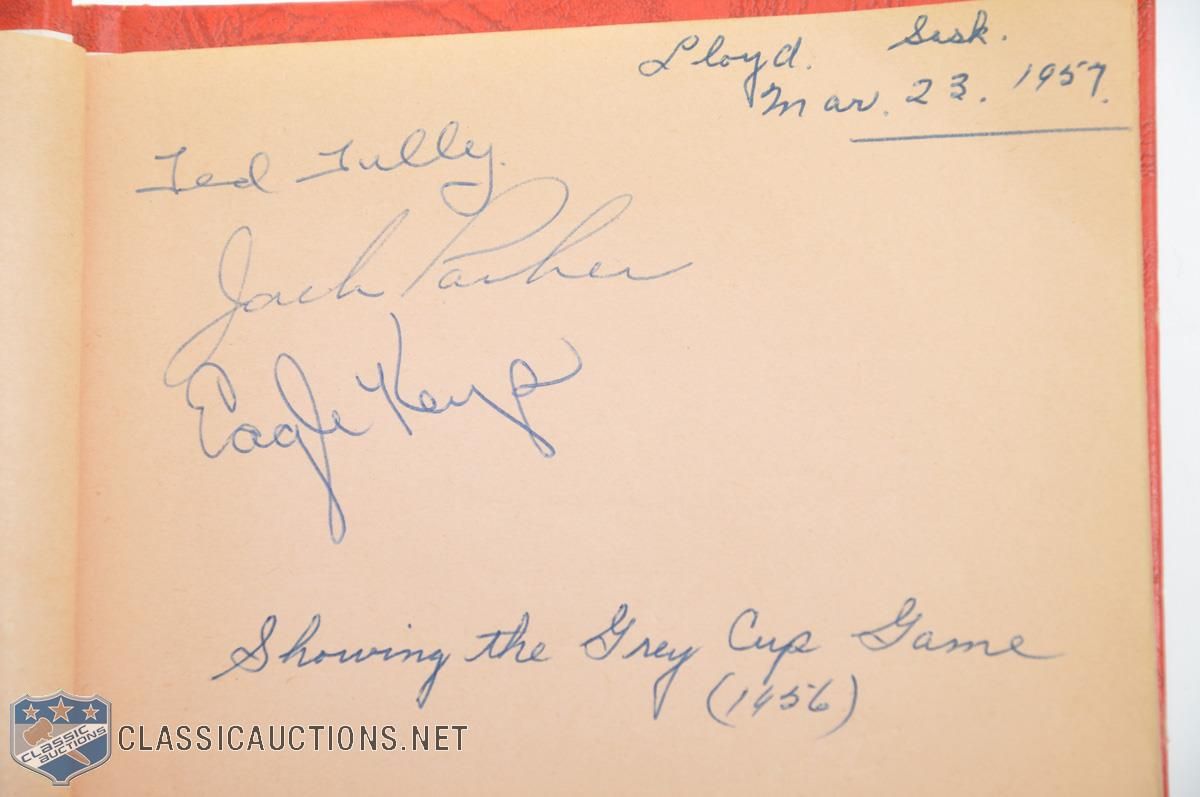 Lloyd. Sisk.
Mar. 23. 1957.
Ted Tully.
Jack Parker
Eagle Keys
Showing the Grey Cup Game
(1956)
CLASSIC AUCTIONS
CLASSICAUCTIONS.NET